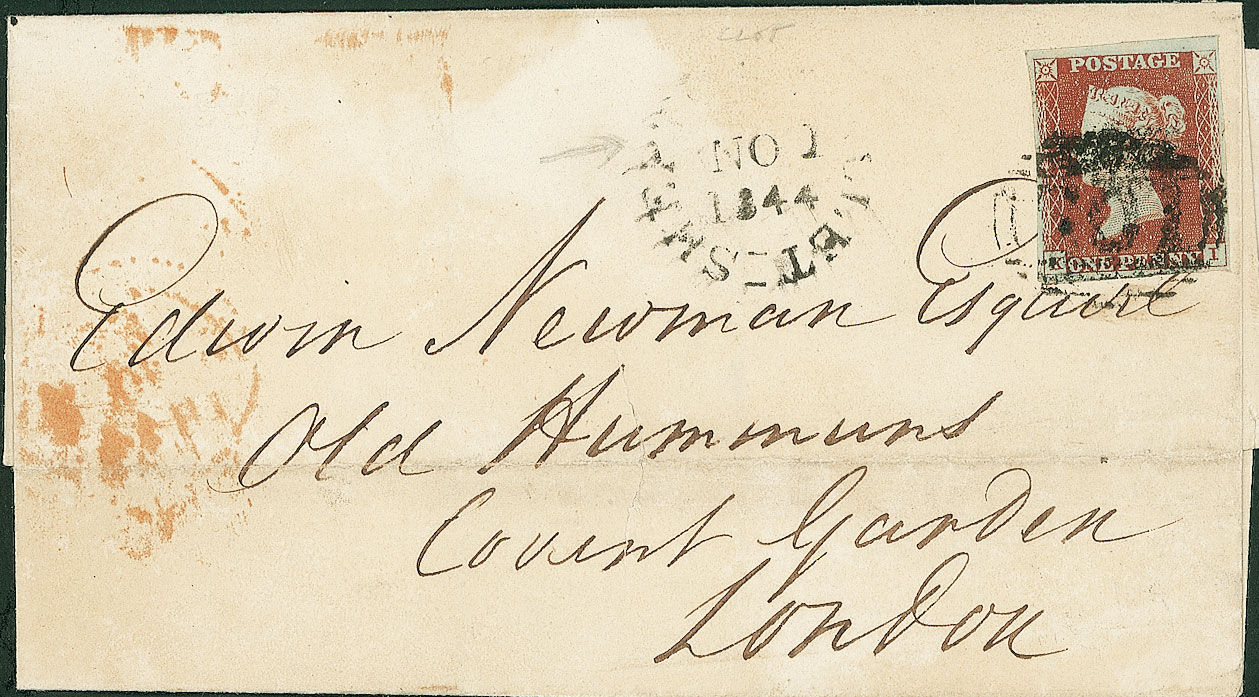 POSTAGE
NO 1
1844
K ONE PENNY I
Edwin Newman Esquire
Old Hummuns
Covent Garden
London